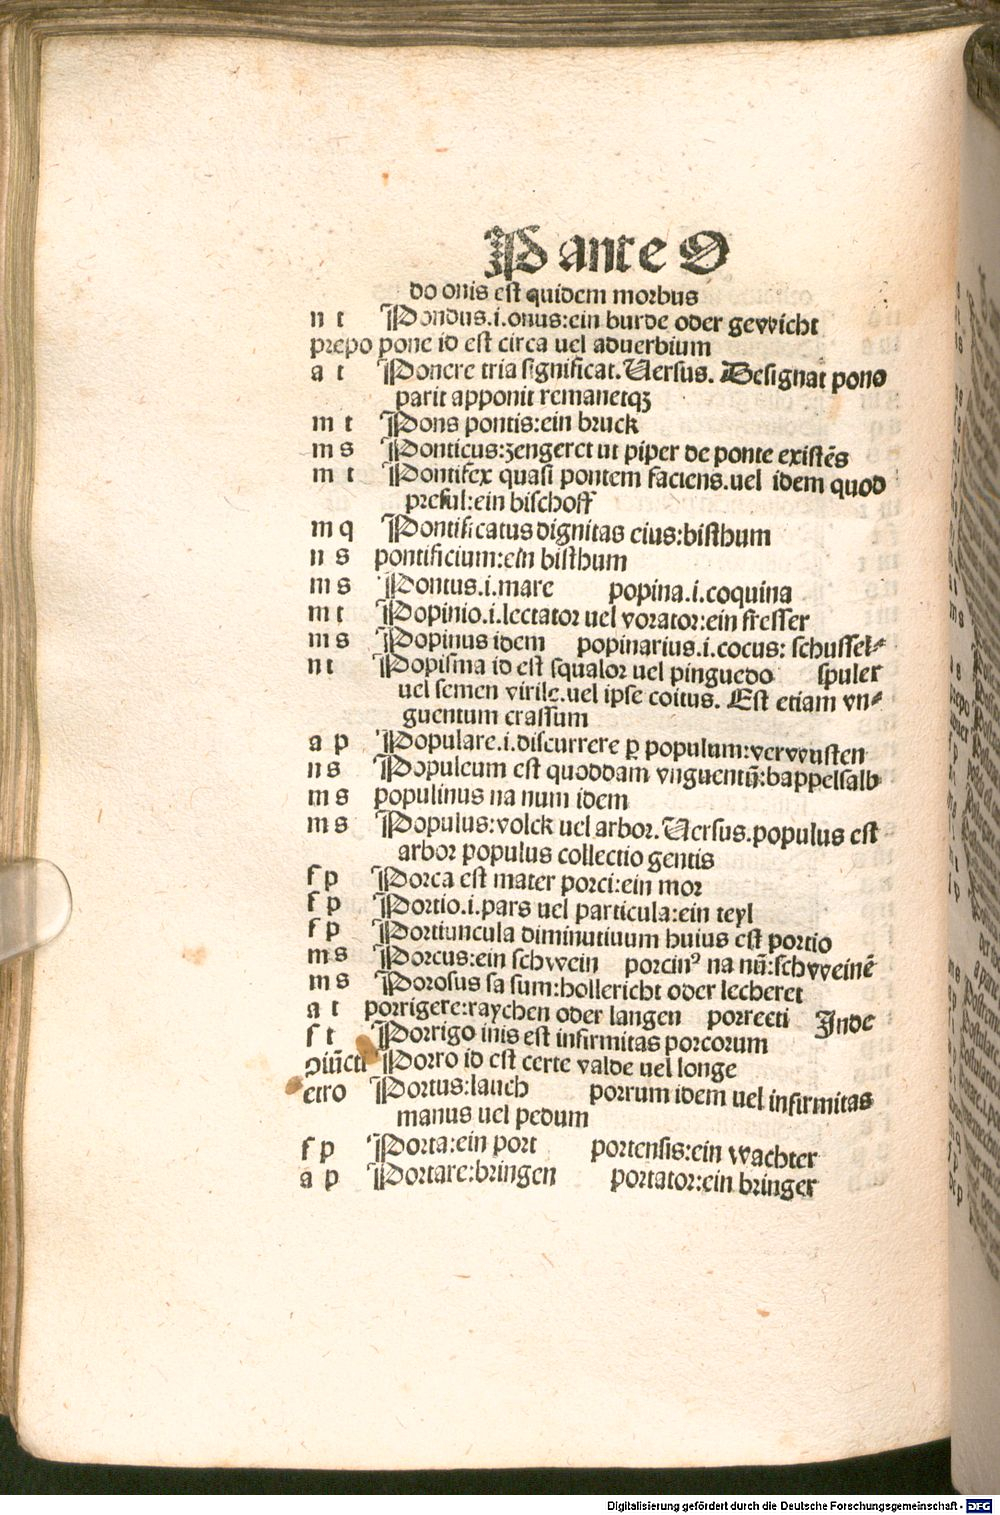 P ante O
do onis est quidem morbus
n t Pondus.i.onus:ein burde oder gewicht
prepo pone id est circa uel aduerbium
a t Ponere tria significat. Uersus. Designat pono
parit apponit remanetqꝫ
m t Pons pontis:ein bruck
m s Ponticus:zengeret ut piper de ponte existēs
m t Pontifex quasi pontem faciens.uel idem quod
presul:ein bischoff
m q Pontificatus dignitas eius:bisthum
n s pontificium:ein bisthum
m s Pontus.i.mare popina.i.coquina
m t Popinio.i.lectator uel vorator:ein fresser
m s Popinus idem popinarius.i.cocus: schussel⸗
n t Popisma id est squalor uel pinguedo spuler
uel semen virile.uel ipse coitus. Est etiam vn⸗
guentum crassum
a p Populare.i.discurrere ꝑ populum:vervvusten
n s Populeum est quoddam vnguentū:bappelsalb
m s populinus na num idem
m s Populus:volck uel arbor. Uersus.populus est
arbor populus collectio gentis
f p Porca est mater porci:ein mor
f p Portio.i.pars uel particula:ein teyl
f p Portiuncula diminutiuum huius est portio
m s Porcus:ein schwein porcinꝰ na nū:schvveinē
m s Porosus sa sum:hollericht oder lecheret
a t porrigere:raychen oder langen porrecti Inde
f t Porrigo inis est infirmitas porcorum
ↄiūcti Porro id est certe valde uel longe
etro Portus:lauch porrum idem uel infirmitas
manus uel pedum
f p Porta:ein port portensis:ein wachter
a p Portare:bringen portator:ein bringer
Digitalisierung gefördert durch die Deutsche Forschungsgemeinschaft - DFG